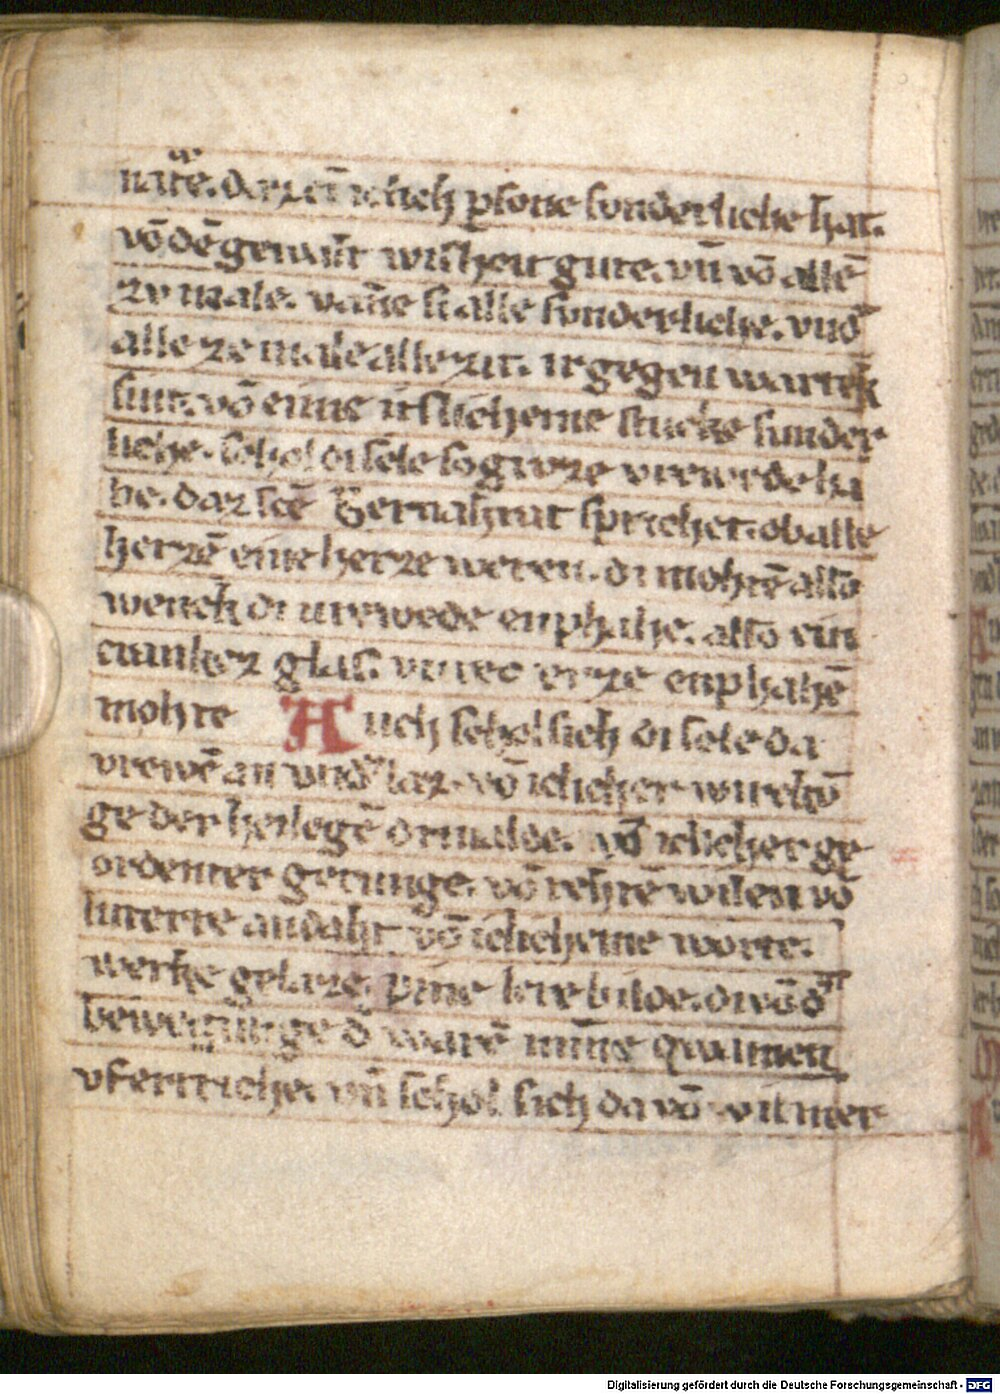 natᵉe. daz eī iclich ꝑsone sonderliche hat.
vō dē gewalt wisheit gute. vn̄ vō allē
zv male. vane si alle sunderliche. vnd̾
alle ze male alle zit. ir gegen wartek
sint. vō eime itslicheme stucke sunder
liche. schol di sele so groze vrewede ha
be. daz sc̄e Bernahrat sprichet. ob alle
herzē eine herze weren. di mohtē also
wenek di urewede enphahe. also ein
crankez glas.
mohte Auch schol sich di sele da
vrewē an vnd̾ laz. vō iclicher wurchū
ge der heilegē driualde. vō iclicher ge
ordenter gerunge. vō rehtē willen vō
luterre andaht vō iclicheme worte.
werke gelaze. pine lere bilde.
bewegunge d̾ warē mīne
vfertriche. vn̄ schol sich da vō